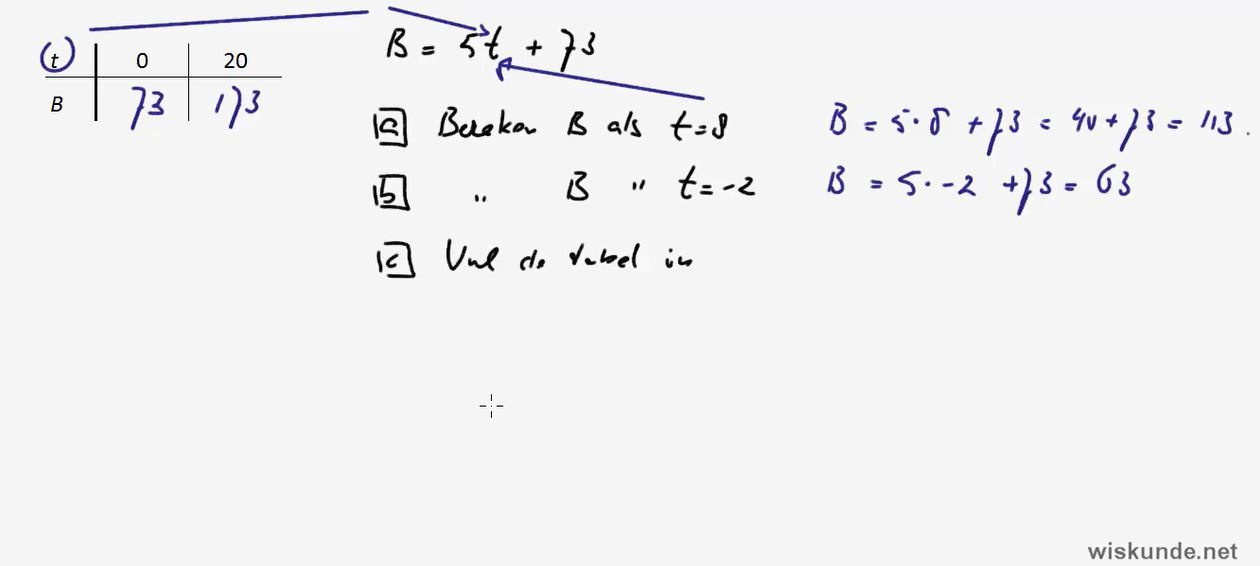 B = 5t + 73
t 0 20
B 73 173
a Bereken B als t=8 B = 5·8 + 73 = 40 + 73 = 113.
b " B " t=-2 B = 5·-2 +73 = 63
c Vul de tabel in
wiskunde.net